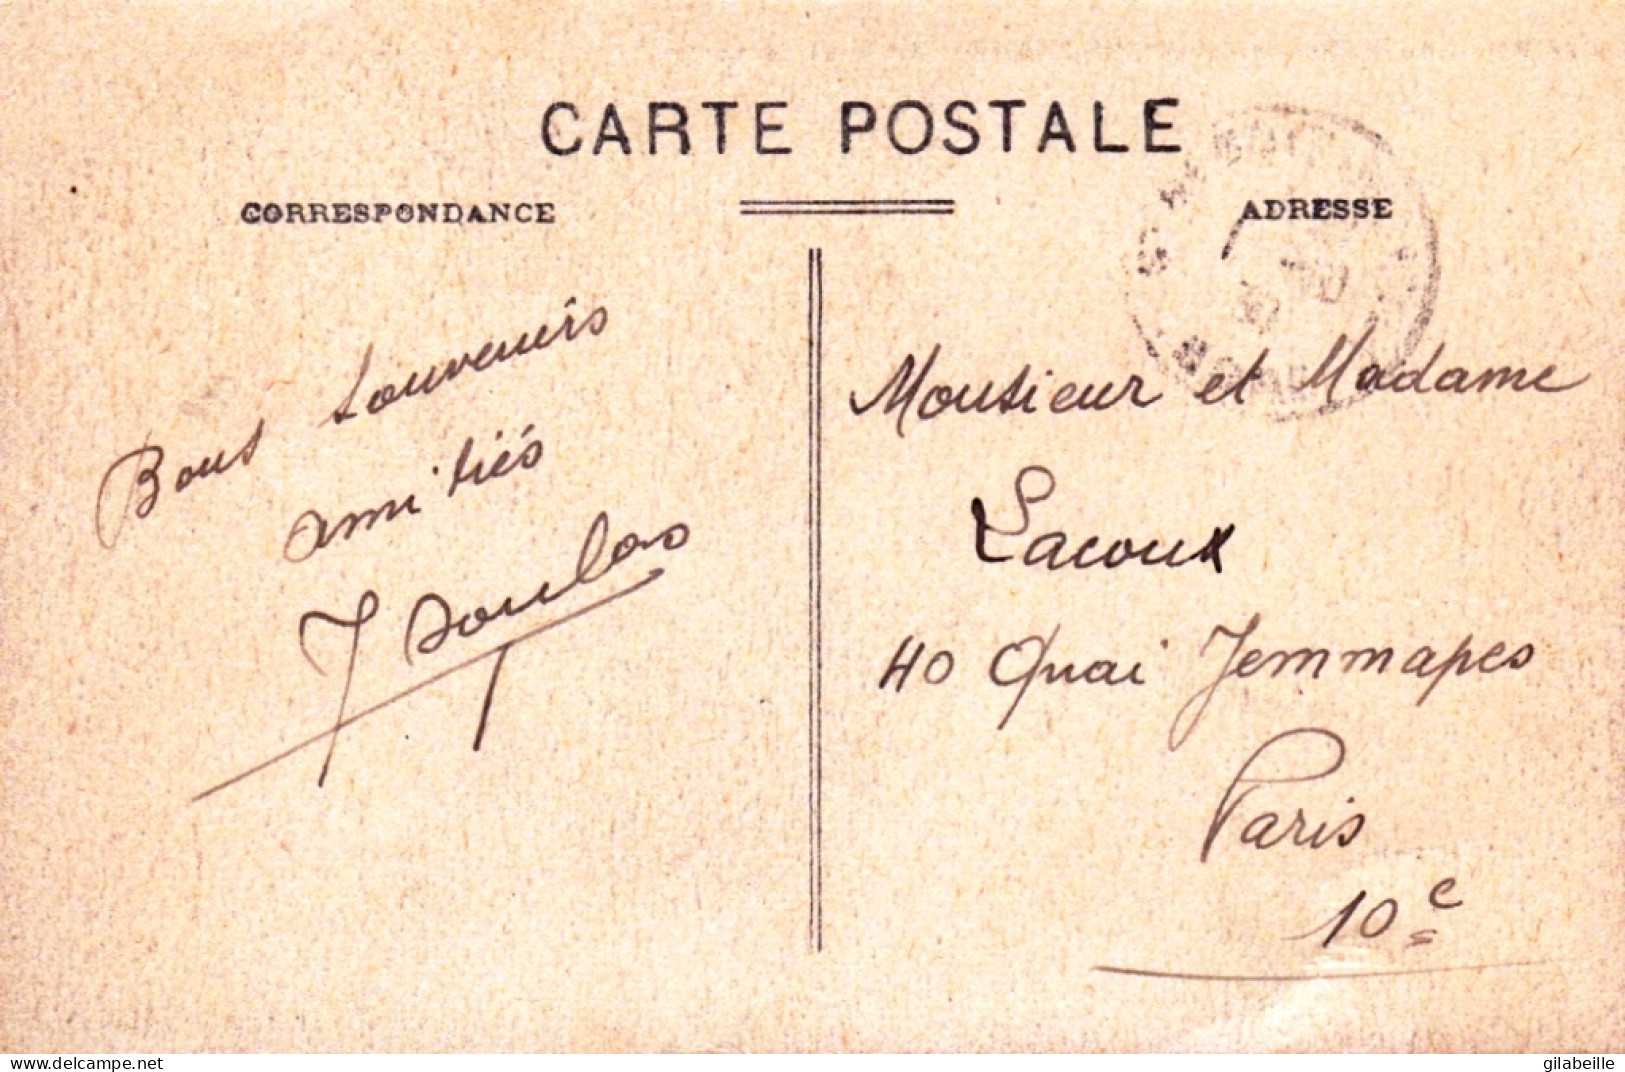 CARTE POSTALE
CORRESPONDANCE
ADRESSE
Bons souvenirs
amitiés
J Soulas
Monsieur et Madame
Lacoux
40 Quai Jemmapes
Paris
10e
www.delcampe.net
gilabeille